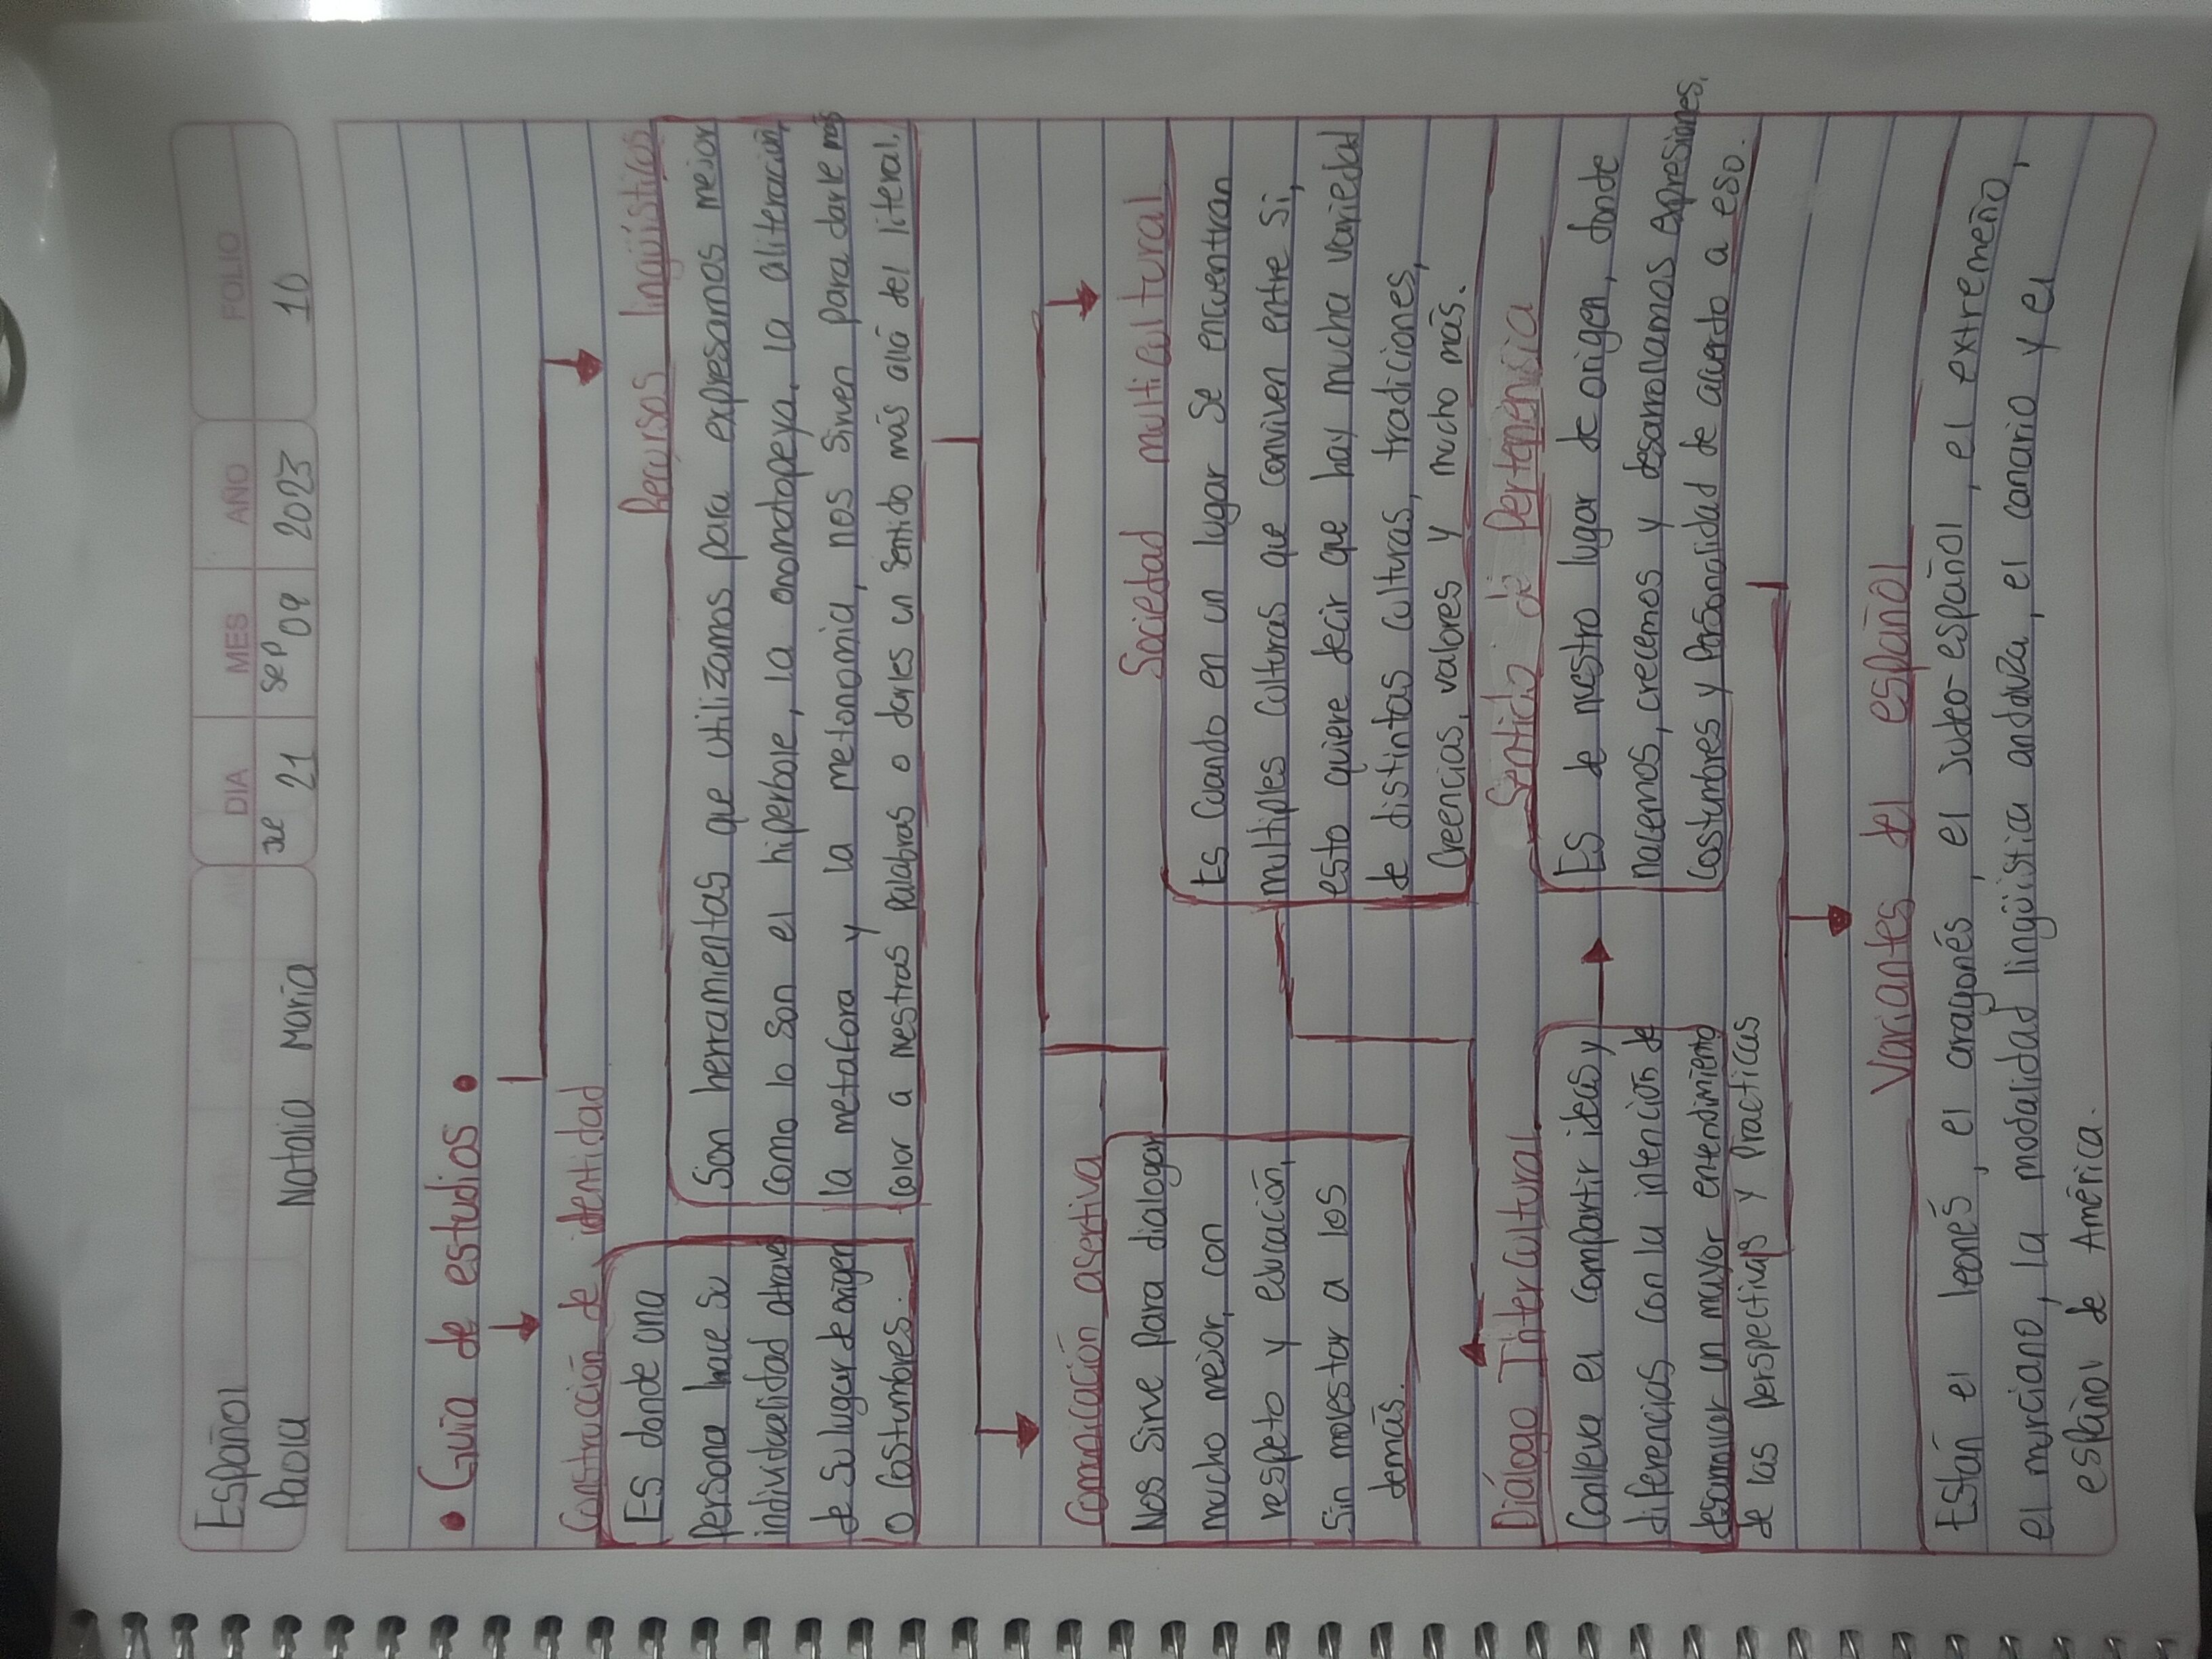 Español DIA MES AÑO FOLIO
Paola Natalia María 21 sep 09 2023 10
• Guía de estudios •
Construcción de identidad
Es donde una
persona hace su
individualidad atraves
de su lugar de origen
o costumbres.
Recursos lingüísticos
Son herramientas que utilizamos para expresarnos mejor
como lo son el hiperbole, la onomatopeya, la aliteración,
la metafora y la metonomia, nos sirven para darle más
color a nuestras palabras o darles un sentido más allá del literal.
Comunicación asertiva
Nos sirve para dialogar
mucho mejor, con
respeto y educación,
sin molestar a los
demás.
Sociedad multicultural
Es cuando en un lugar se encuentran
multiples culturas que conviven entre si,
esto quiere decir que hay mucha variedad
de distintas culturas, tradiciones,
creencias, valores y mucho más.
Diálogo Intercultural
Conlleva el compartir ideas y
diferencias con la intención de
desarrollar un mayor entendimiento
de las perspectivas y practicas
Sentido de pertenensia
Es de nuestro lugar de origen, donde
nacemos, crecemos y desarrollamos expresiones,
costumbres y personalidad de acuerdo a eso.
Variantes del español
Están el leonés, el aragonés, el judeo-español, el extremeño,
el murciano, la modalidad lingüistica andaluza, el canario y el
español de América.